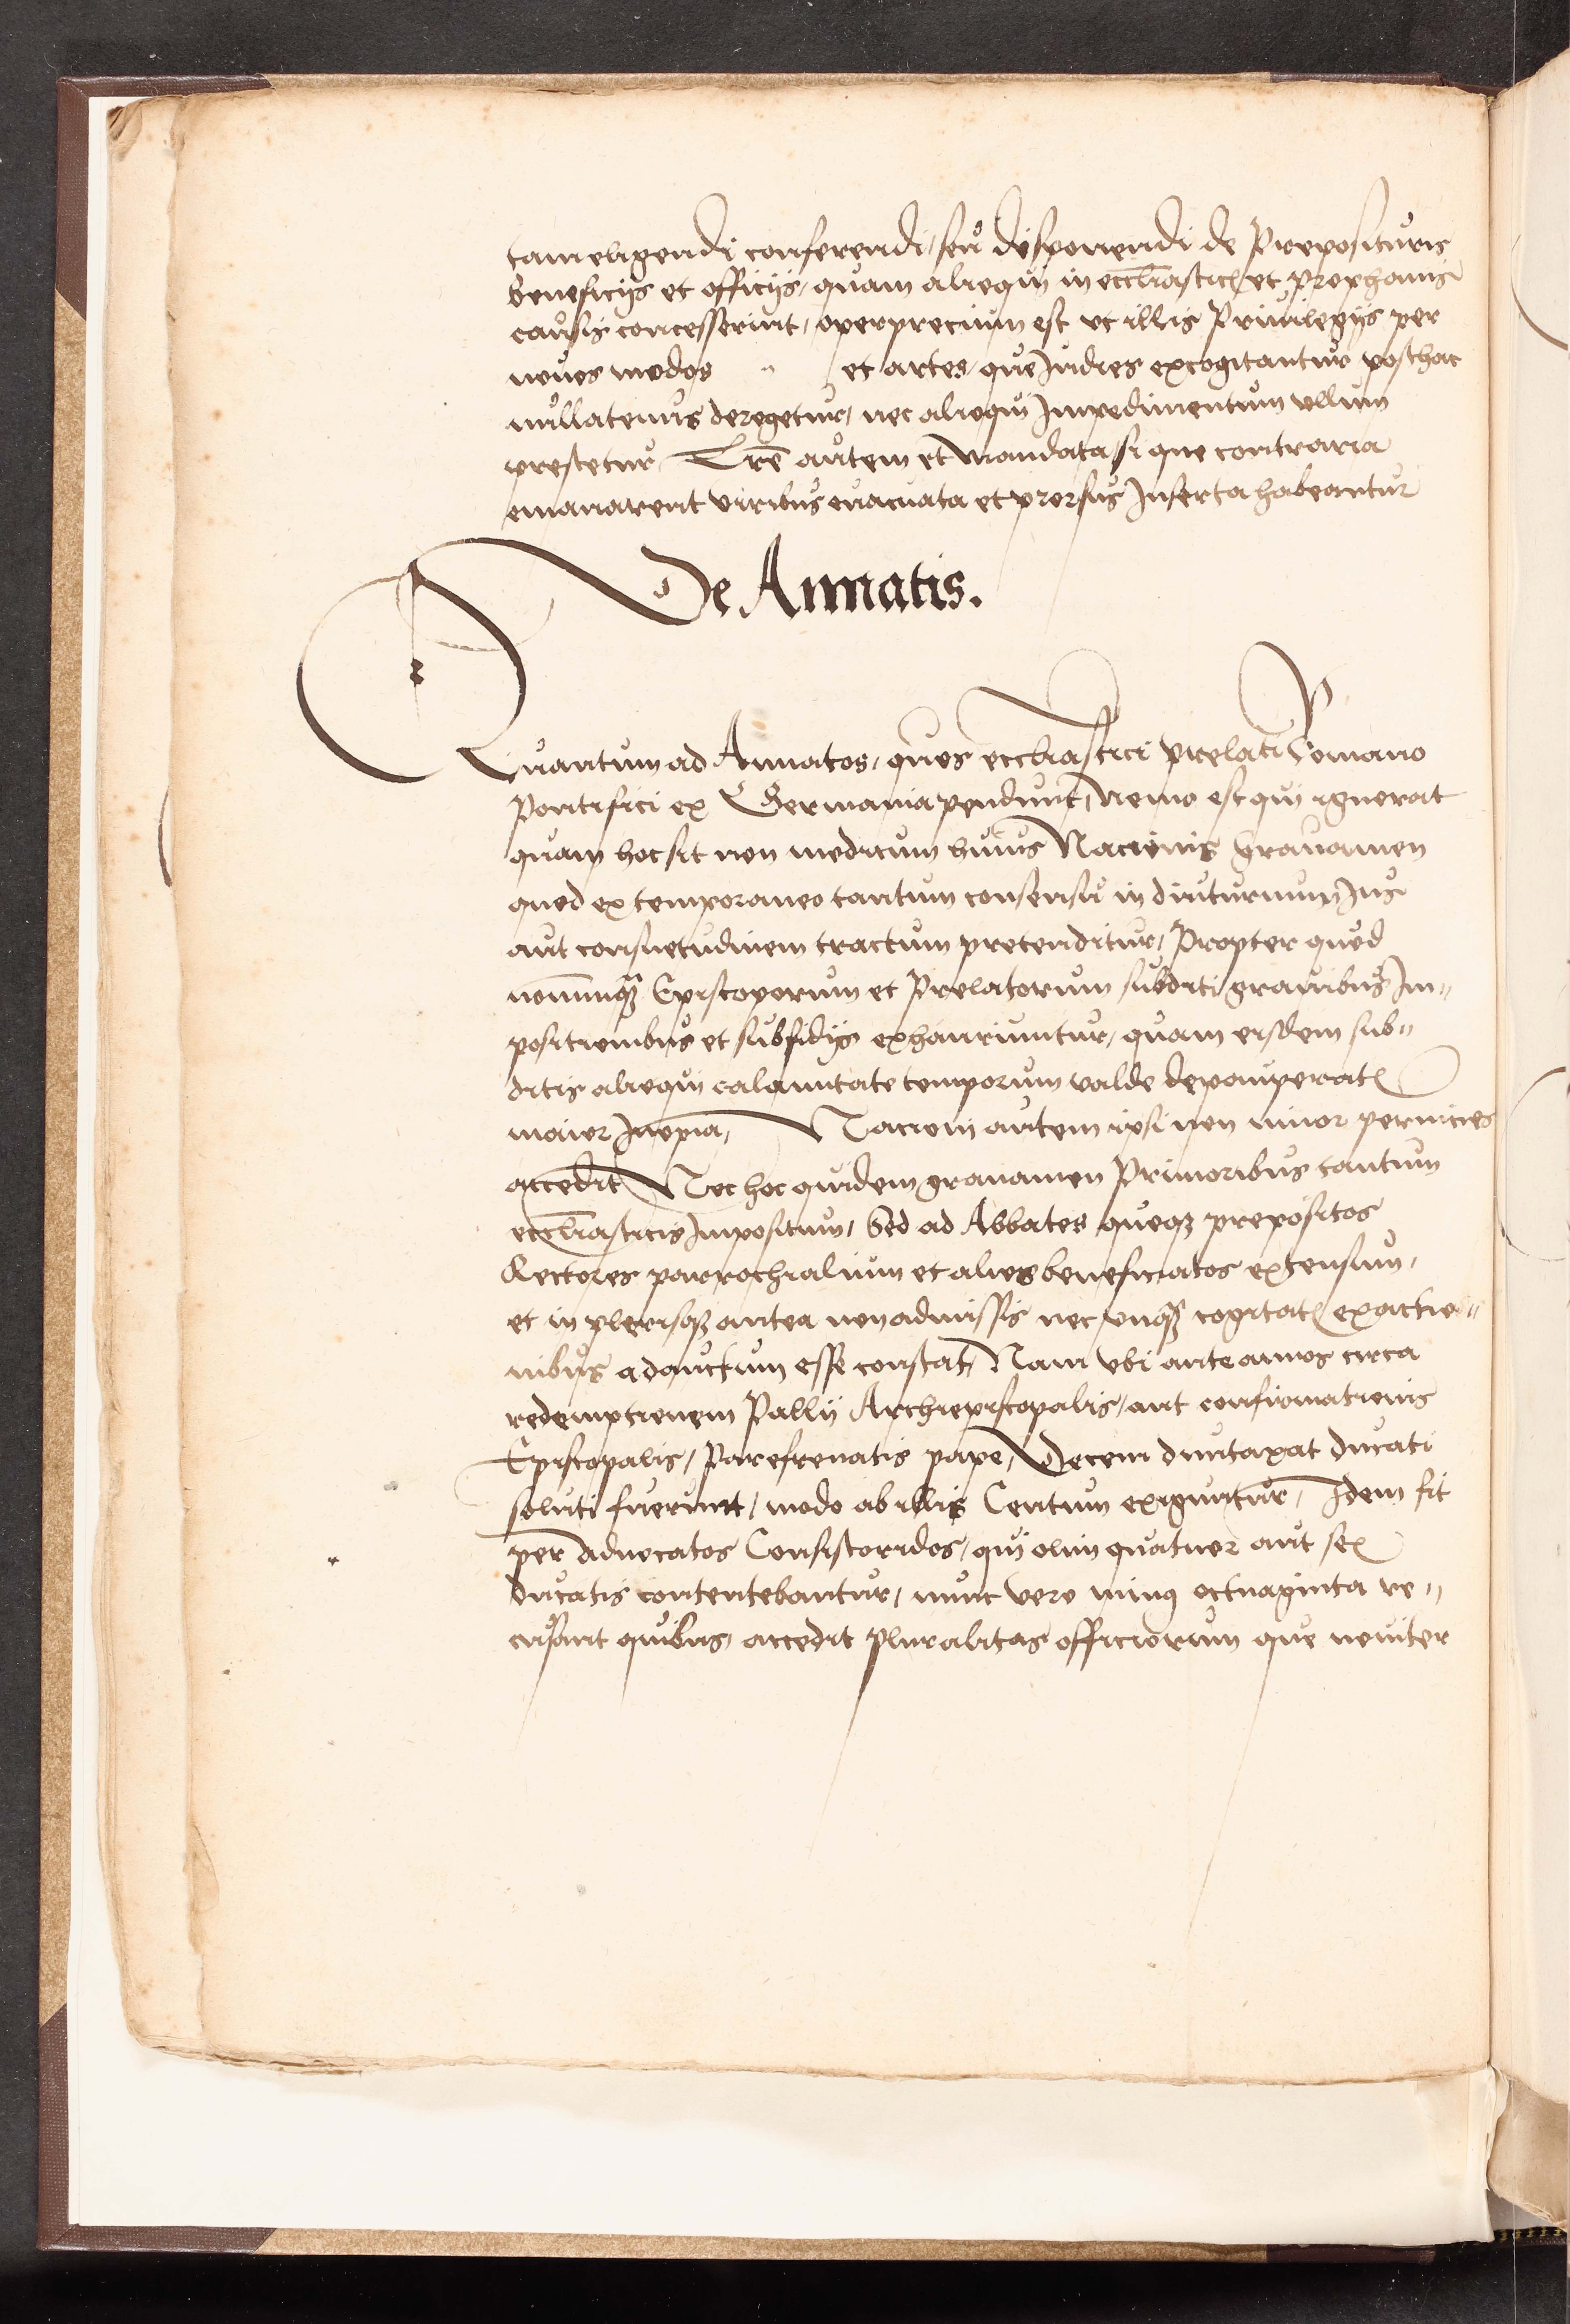 tam eligendi conferendi, seu disponendi de Preposituris
beneficijs et officijs, quam alioquin in eccl̅iasticis et prophanis
causis concesserint, opereprecium est vt illis Priuilegijs per
nouos modos et artes, que Indies excogitantur posthac
nullatenus derogetur, nec alioqui Impedimentum vllum
prestetur, Lr̅e autem et mandata, si que contraria
emanarent viribus euacuata et prorsus Inserta habeantur
De Annatis.
Quantum ad Annatas, quas eccl̅iastici prelati Romano
Pontifici ex Germania pendunt, nemo est qui ignorat
quam hoc sit non modicum huius Nacionis Grauamen
quod ex temporaneo tantum consensu in diuturnum Ius
aut consuetudinem tractum pretenditur, Propter quod
nonnunqꝫ Episcoporum et Prelatorum subditi grauibus Im„
positionibus et subsidijs exhauriuntur, quam eisdem sub„
ditis alioqui calamitate temporum valde depauperatis
maior Inopia, Nacioni autem ipsi non minor pernicies
accedit Nec hoc quidem grauamen Primoribus tantum
eccl̅iasticis Impositum, Sed ad Abbates quoqꝫ prepositos
Rectores parrochialium et alios beneficiatos extensum,
et in plerisqꝫ antea non admissis nec vnqꝫ cogitatis exactio„
nibus adauctum esse constat, Nam vbi ante annos circa
redemptionem Pallij Archiepiscopalis, aut confirmationis
Episcopalis, Parefrenatis pape, Decem duntaxat ducati
soluti fuerunt, modo ab illis Centum exiguntur, Idem fit
per Aduocatos Consistoridos, qui olim quatuor aut sex
ducatis contentebantur, nunc vero minus octuaginta re„
cusant quibus, accedit pluralitas officiorum que nouiter